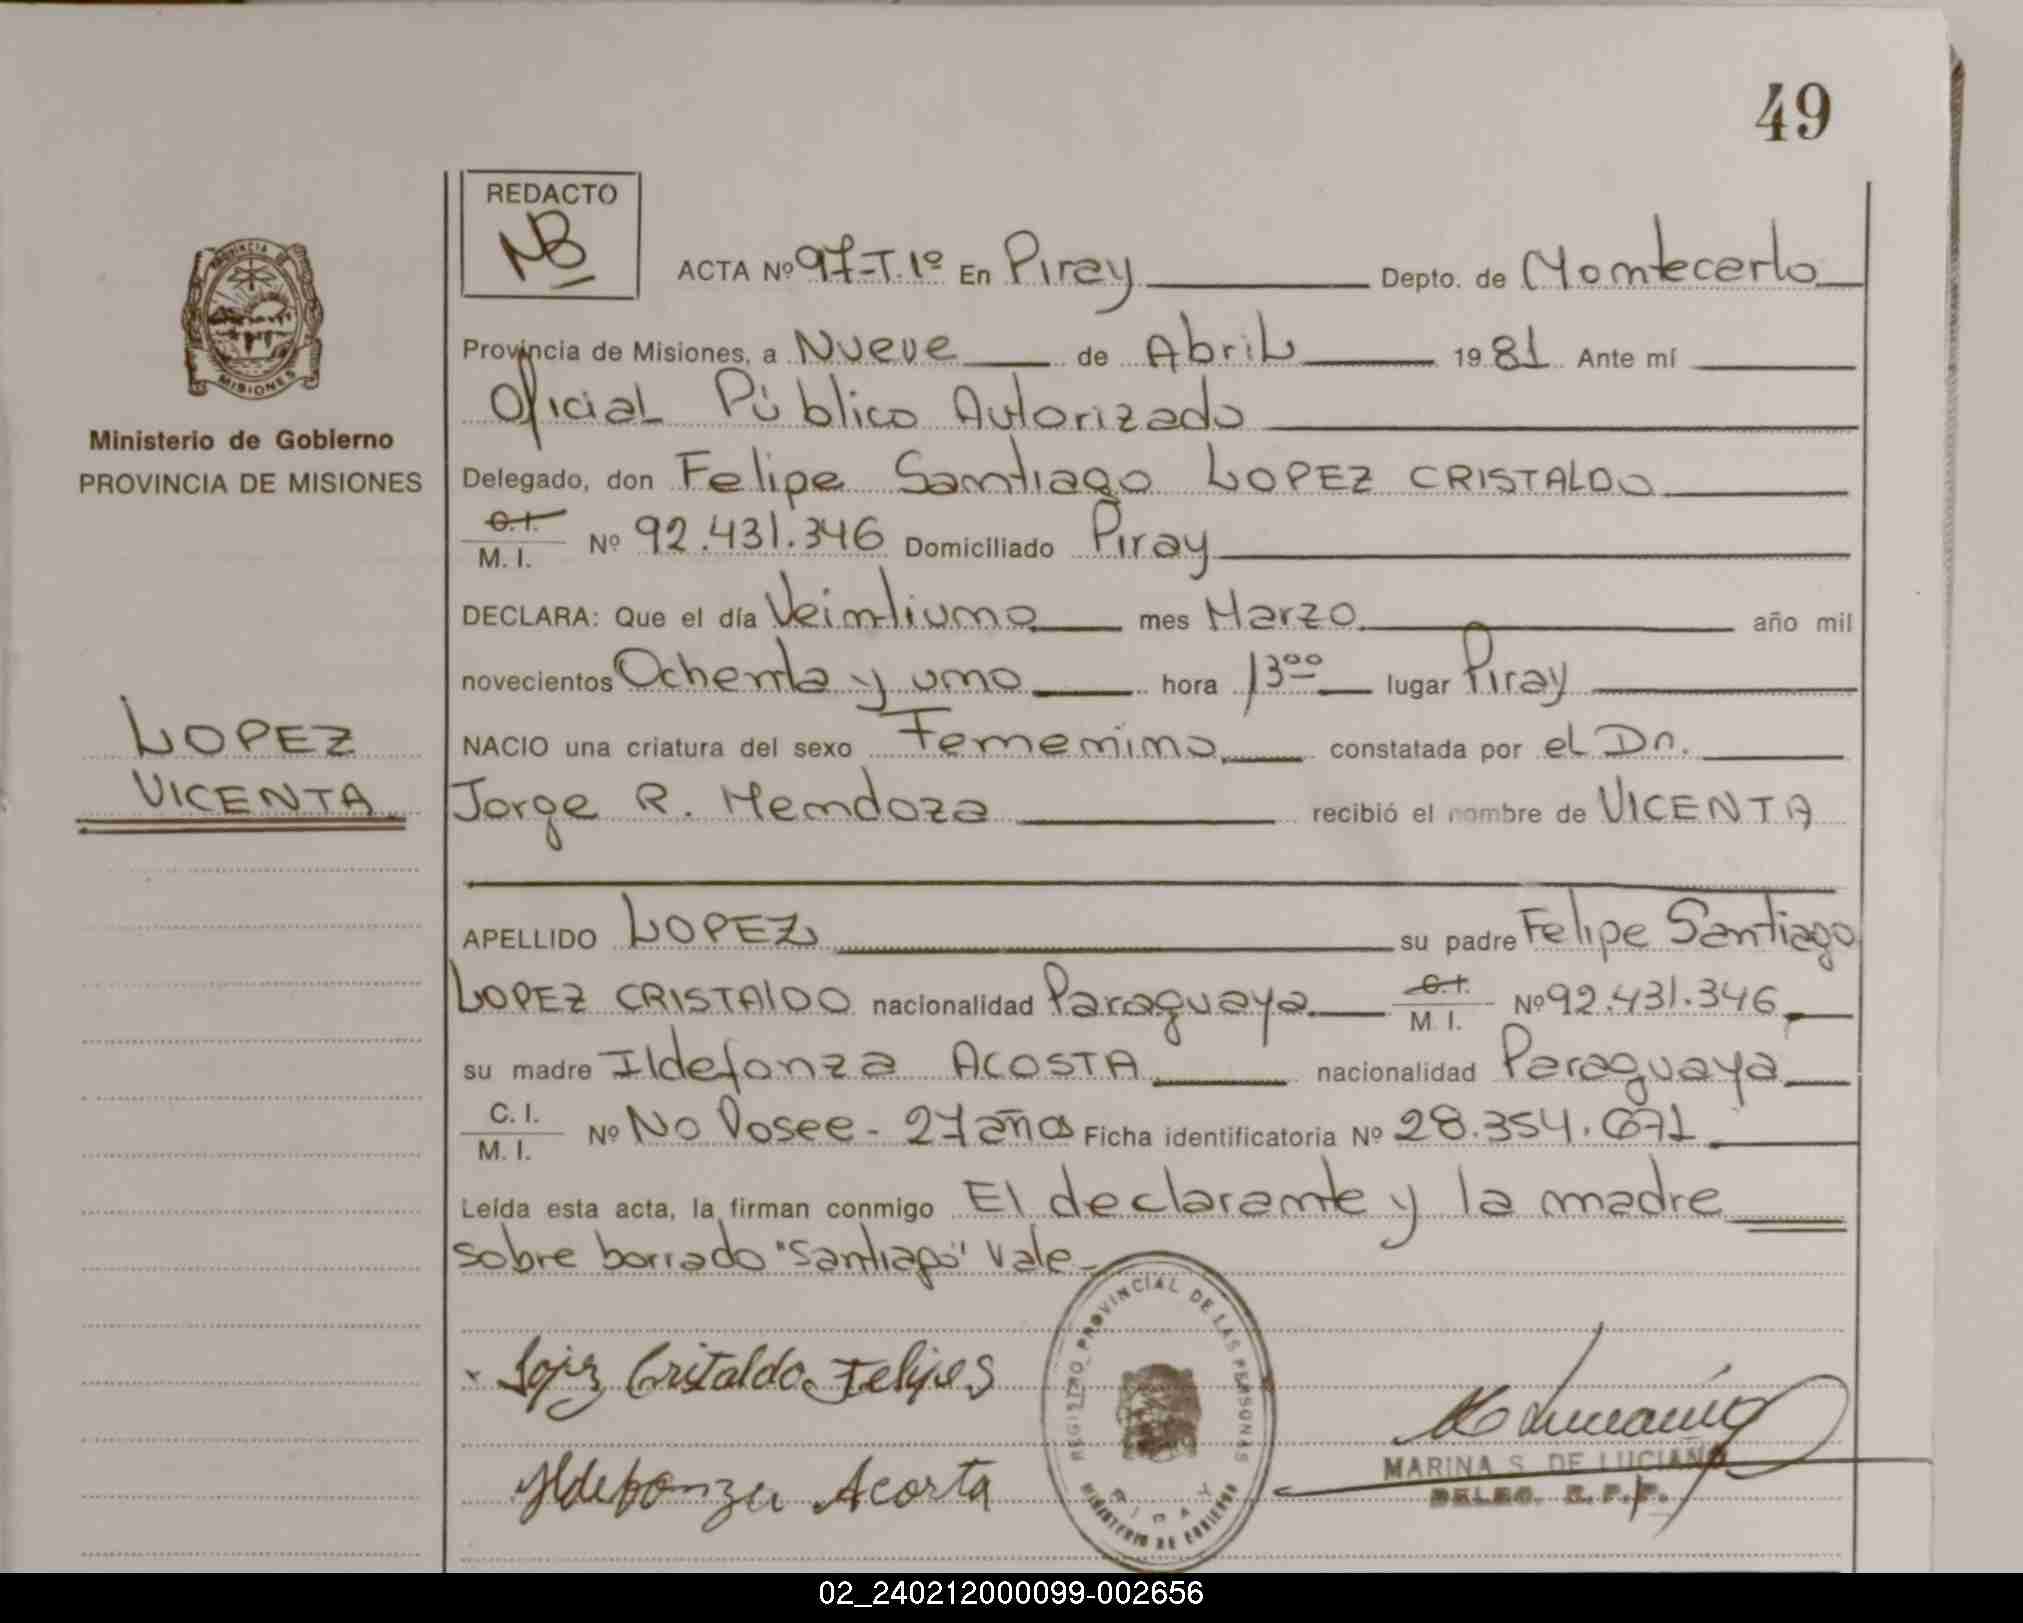 49
REDACTO
NB
ACTA Nº 97-T.1º En Piray Depto. de Montecarlo
PROVINCIA DE
MISIONES
Provincia de Misiones, a Nueve de Abril 1981 Ante mí
Oficial Público Autorizado
Ministerio de Gobierno
PROVINCIA DE MISIONES
Delegado, don Felipe Santiago LOPEZ CRISTALDO
C.I.
M. I. Nº 92.431.346 Domiciliado Piray
DECLARA: Que el día Veintiuno mes Marzo año mil
novecientos Ochenta y uno hora 13⁰⁰ lugar Piray
LOPEZ
VICENTA
NACIO una criatura del sexo Femenino constatada por el Dr.
Jorge R. Mendoza recibió el nombre de VICENTA
APELLIDO LOPEZ su padre Felipe Santiago
LOPEZ CRISTALDO nacionalidad Paraguaya C.I. M. I. Nº 92.431.346
su madre Ildefonza ACOSTA nacionalidad Paraguaya
C. I.
M. I. Nº No Posee - 27 años Ficha identificatoria Nº 28.354.671
Leída esta acta, la firman conmigo El declarante y la madre
sobre borrado "Santiago" Vale-
REGISTRO PROVINCIAL DE LAS PERSONAS
PIRAY
MINISTERIO DE GOBIERNO
Lopez Cristaldo Felipes
Ildefonza Acosta
MARINA S. DE LUCIANO
DELEG. R.P.P.
02_240212000099-002656